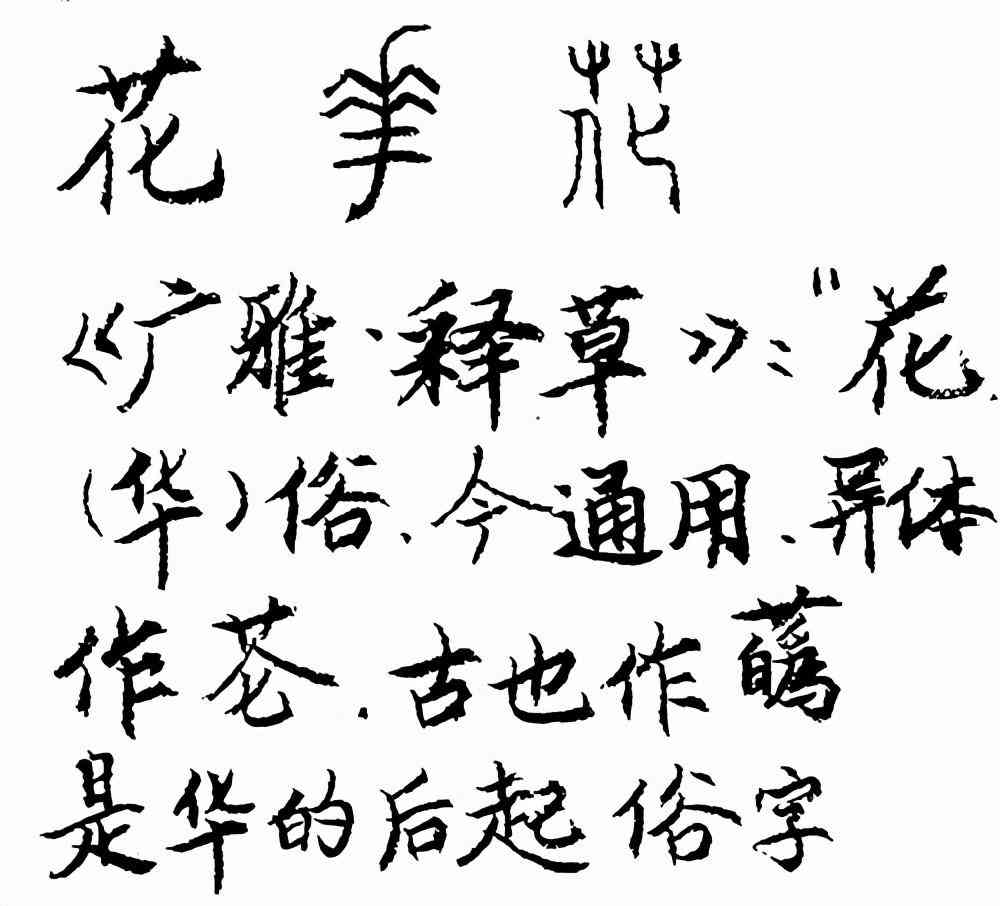 花 花
《广雅·释草》：“花.
(华)俗.今通用.异体
作芲.古也作蘤
是华的后起俗字